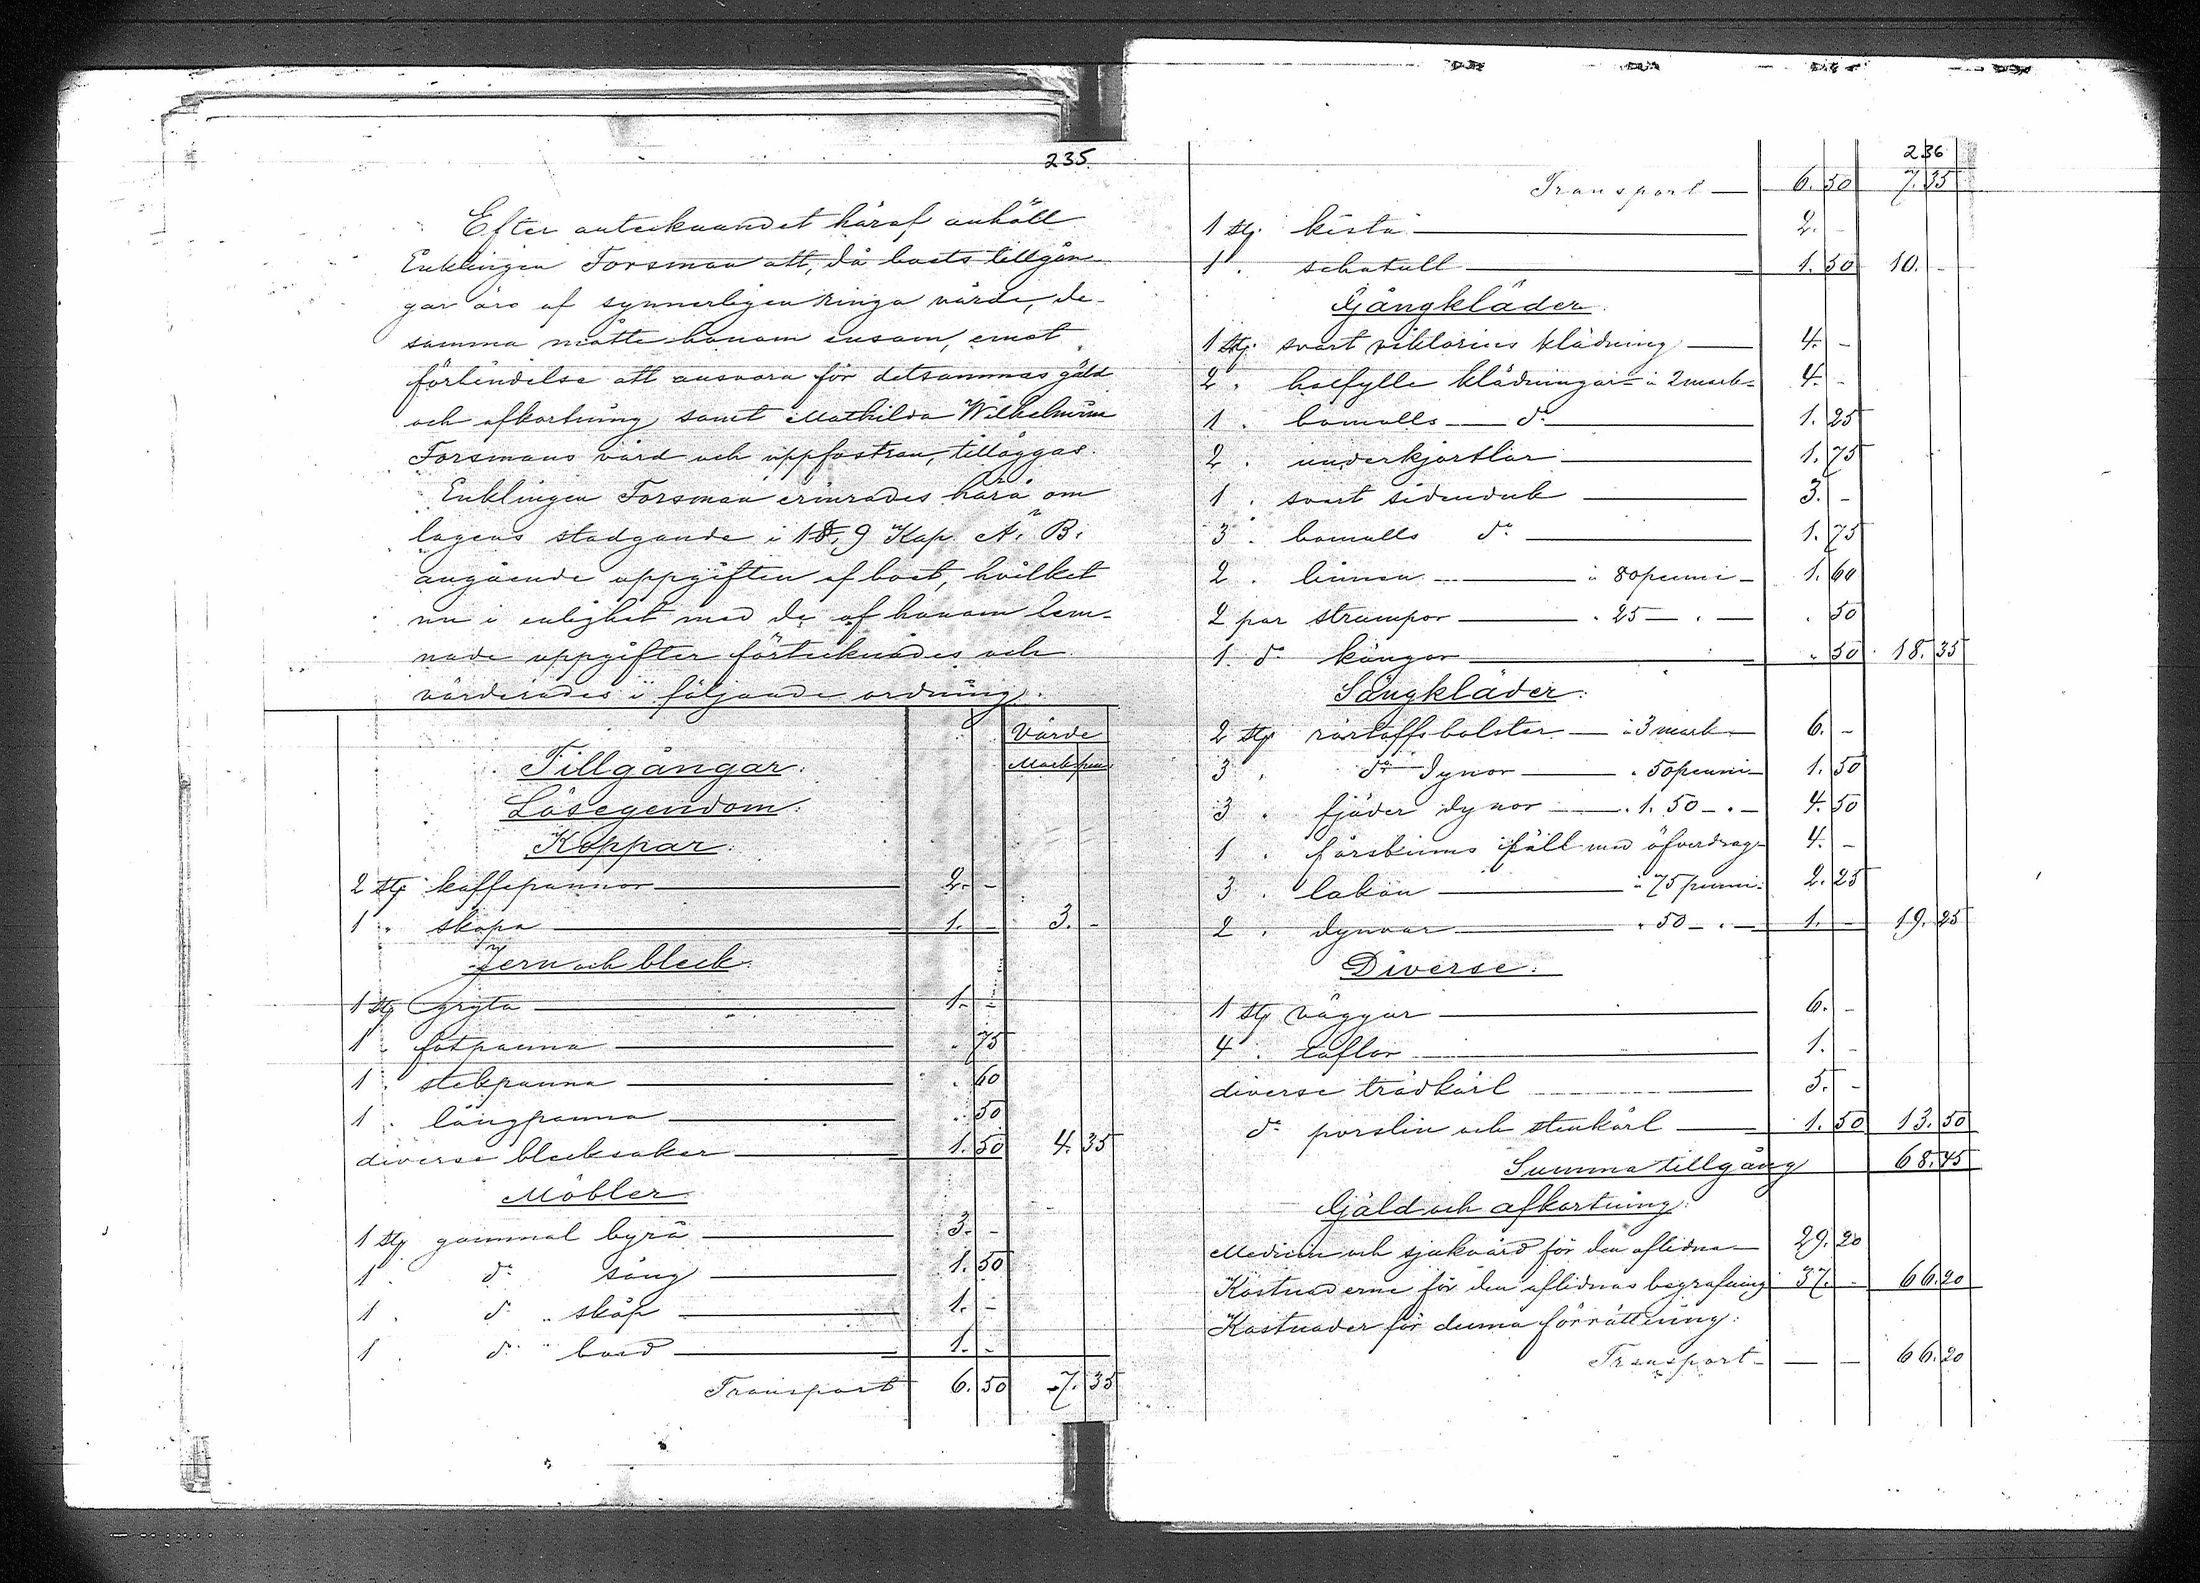 235.
Efter antecknandet häraf anhöll
Enklingen Forsman att, då boets tillgån-
gar äro af synnerligen ringa värde, de-
samma måtte honom ensam, emot
förbindelse att ansvara för detsammas gäld
och afkortning samt Mathilda Wilhelmina
Forsmans vård och uppfostran, tilläggas.
Enklingen Forsman erinrades härå om
lagens stadgande i 9 Kap. Ä. B.
angående uppgiften af boet, hvilket
nu i enlighet med de af honom lem-
nade uppgifter förtecknades och
värderades i följande ordning:
Värde
Mark pen
Tillgångar:
Lösegendom:
Koppar:
2 stg kaffepannor 2. -
1 " skopa 1. - 3. -
Jern och bleck:
1 stg gryta 1. -
1 " fotpanna " 75
1 " stekpanna " 60
1 " långpanna " 50
diverse blecksaker 1. 50 4. 35
Möbler
1 stg gammal byrå 3. -
1 " d:o säng 1. 50
1 " d:o " skåp 1. -
1 " d:o " bord 1. -
Transport 6. 50 7. 35
236
Transport 6. 50 7. 35
1 stg. kista 2. -
1 " schatull 1. 50 10. -
Gångkläder
1 stg. svart viktorins klädning 4. -
2 " halfylle klädningar à 2 mark 4. -
1 " bomulls d:o 1. 25
2 " underkjortlar 1. 75
1 " svart sidenduk 3. -
3 " bomulls d:o 1. 75
2 " linnen à 80 penni 1. 60
2 par strumpor " 25 " " 50
1 d:o kängor " 50 18. 35
Sängkläder:
2 stg bolster à 3 mark 6. -
3 " d:o dynor " 50 penni 1. 50
3 " fjäder dynor " 1. 50 " 4. 50
1 " fårskinns fäll med öfverdrag 4. -
3 " lakan à 75 penni 2. 25
2 " dynvar " 50 " 1. - 19. 25
Diverse:
1 stg väggur 6. -
4 " taflor 1. -
diverse trädkärl 5. -
d:o porslin och stenkärl 1. 50 13. 50
Summa tillgång 68. 45
Gäld och afkortning:
Medicin och sjukvård för den aflidna 29. 20
Kostnaderne för den aflidnas begrafning 37. - 66. 20
Kostnader för denna förrättning:
Transport - - 66. 20